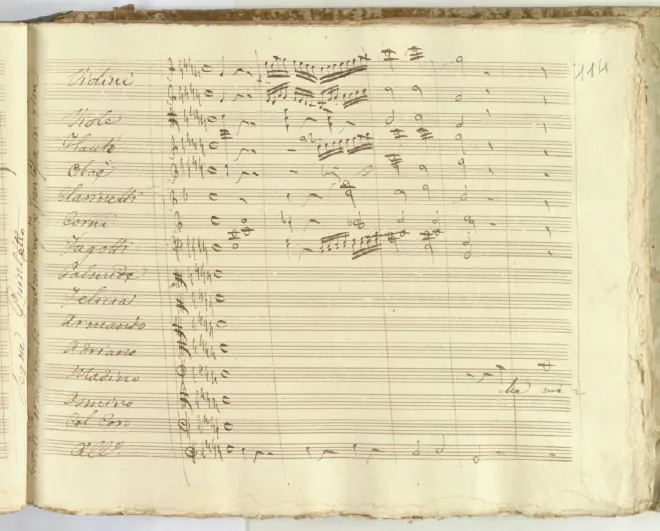 114
Violini
Viole
Flauti
Oboè
Clarinetti
Corni
Fagotti
Palmide
Felicia
Armando
Adriano
Aladino
Osmino
Col Coro
All°
Segue Quintetto